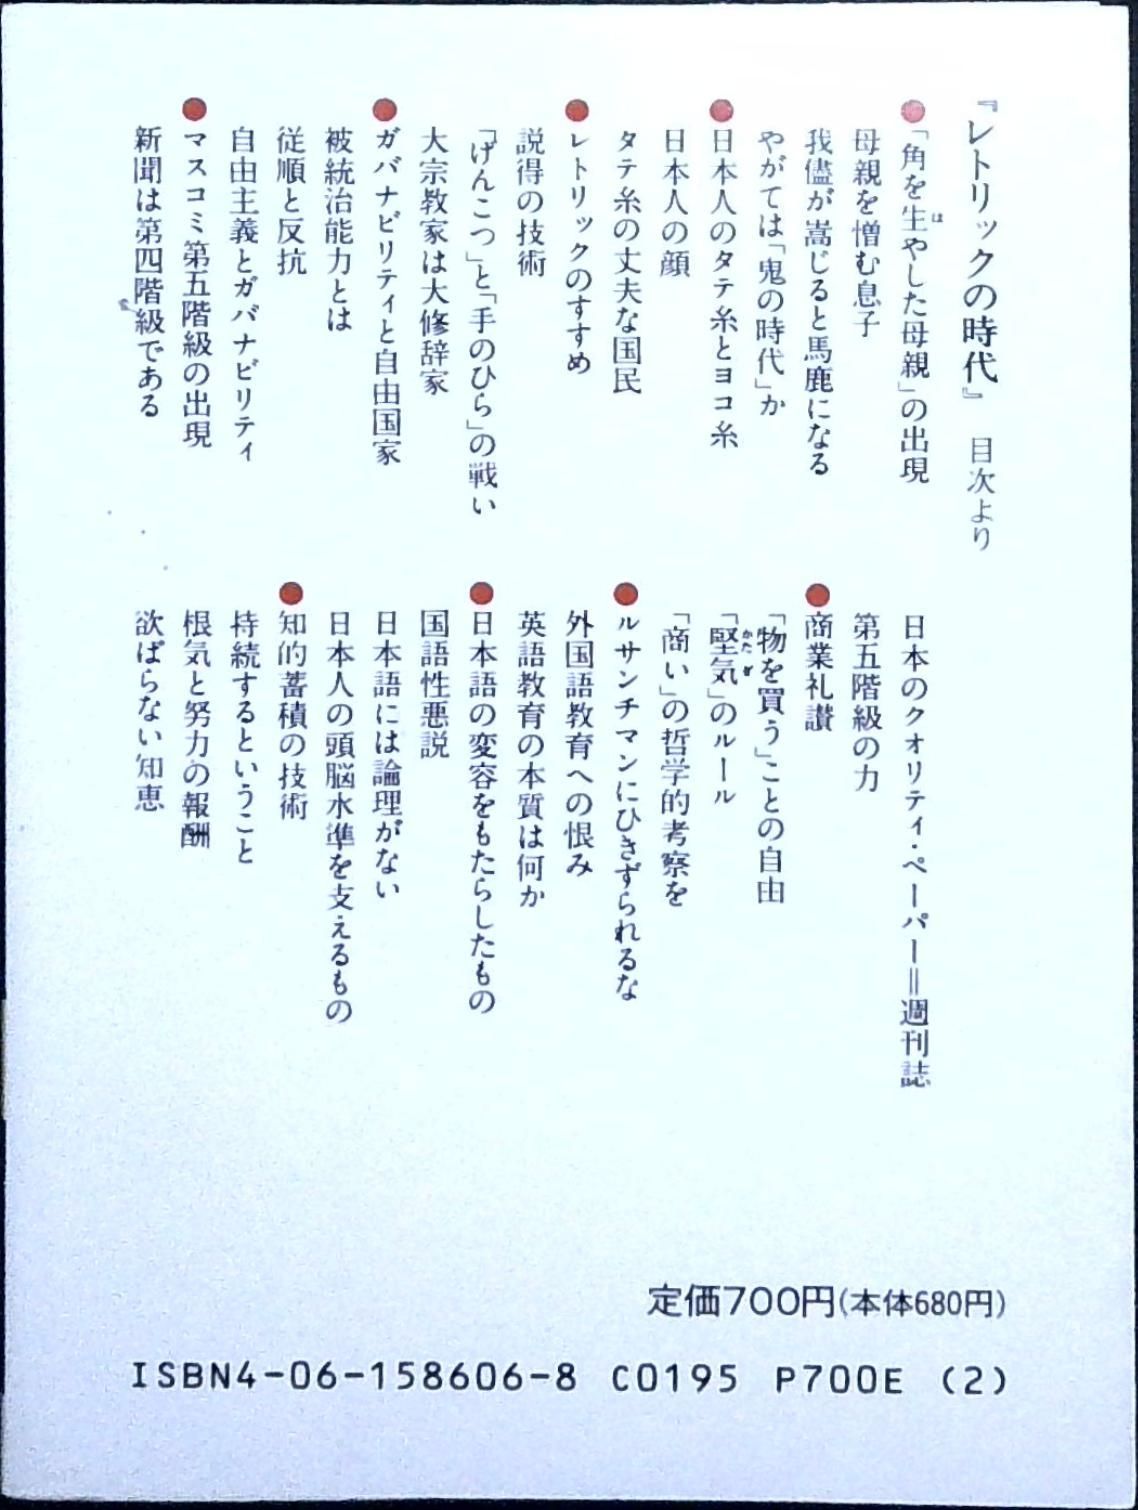 『レトリックの時代』 目次より
●「角を生やした母親」の出現
母親を憎む息子
我儘が嵩じると馬鹿になる
やがては「鬼の時代」か
●日本人のタテ糸とヨコ糸
日本人の顔
タテ糸の丈夫な国民
●レトリックのすすめ
説得の技術
「げんこつ」と「手のひら」の戦い
大宗教家は大修辞家
●ガバナビリティと自由国家
被統治能力とは
従順と反抗
自由主義とガバナビリティ
●マスコミ第五階級の出現
新聞は第四階級である
日本のクォリティ・ペーパー＝週刊誌
第五階級の力
●商業礼讃
「物を買う」ことの自由
「堅気」のルール
「商い」の哲学的考察を
●ルサンチマンにひきずられるな
外国語教育への恨み
英語教育の本質は何か
●日本語の変容をもたらしたもの
国語性悪説
日本語には論理がない
日本人の頭脳水準を支えるもの
●知的蓄積の技術
持続するということ
根気と努力の報酬
欲ばらない知恵
定価700円(本体680円)
ISBN4-06-158606-8 C0195 P700E (2)